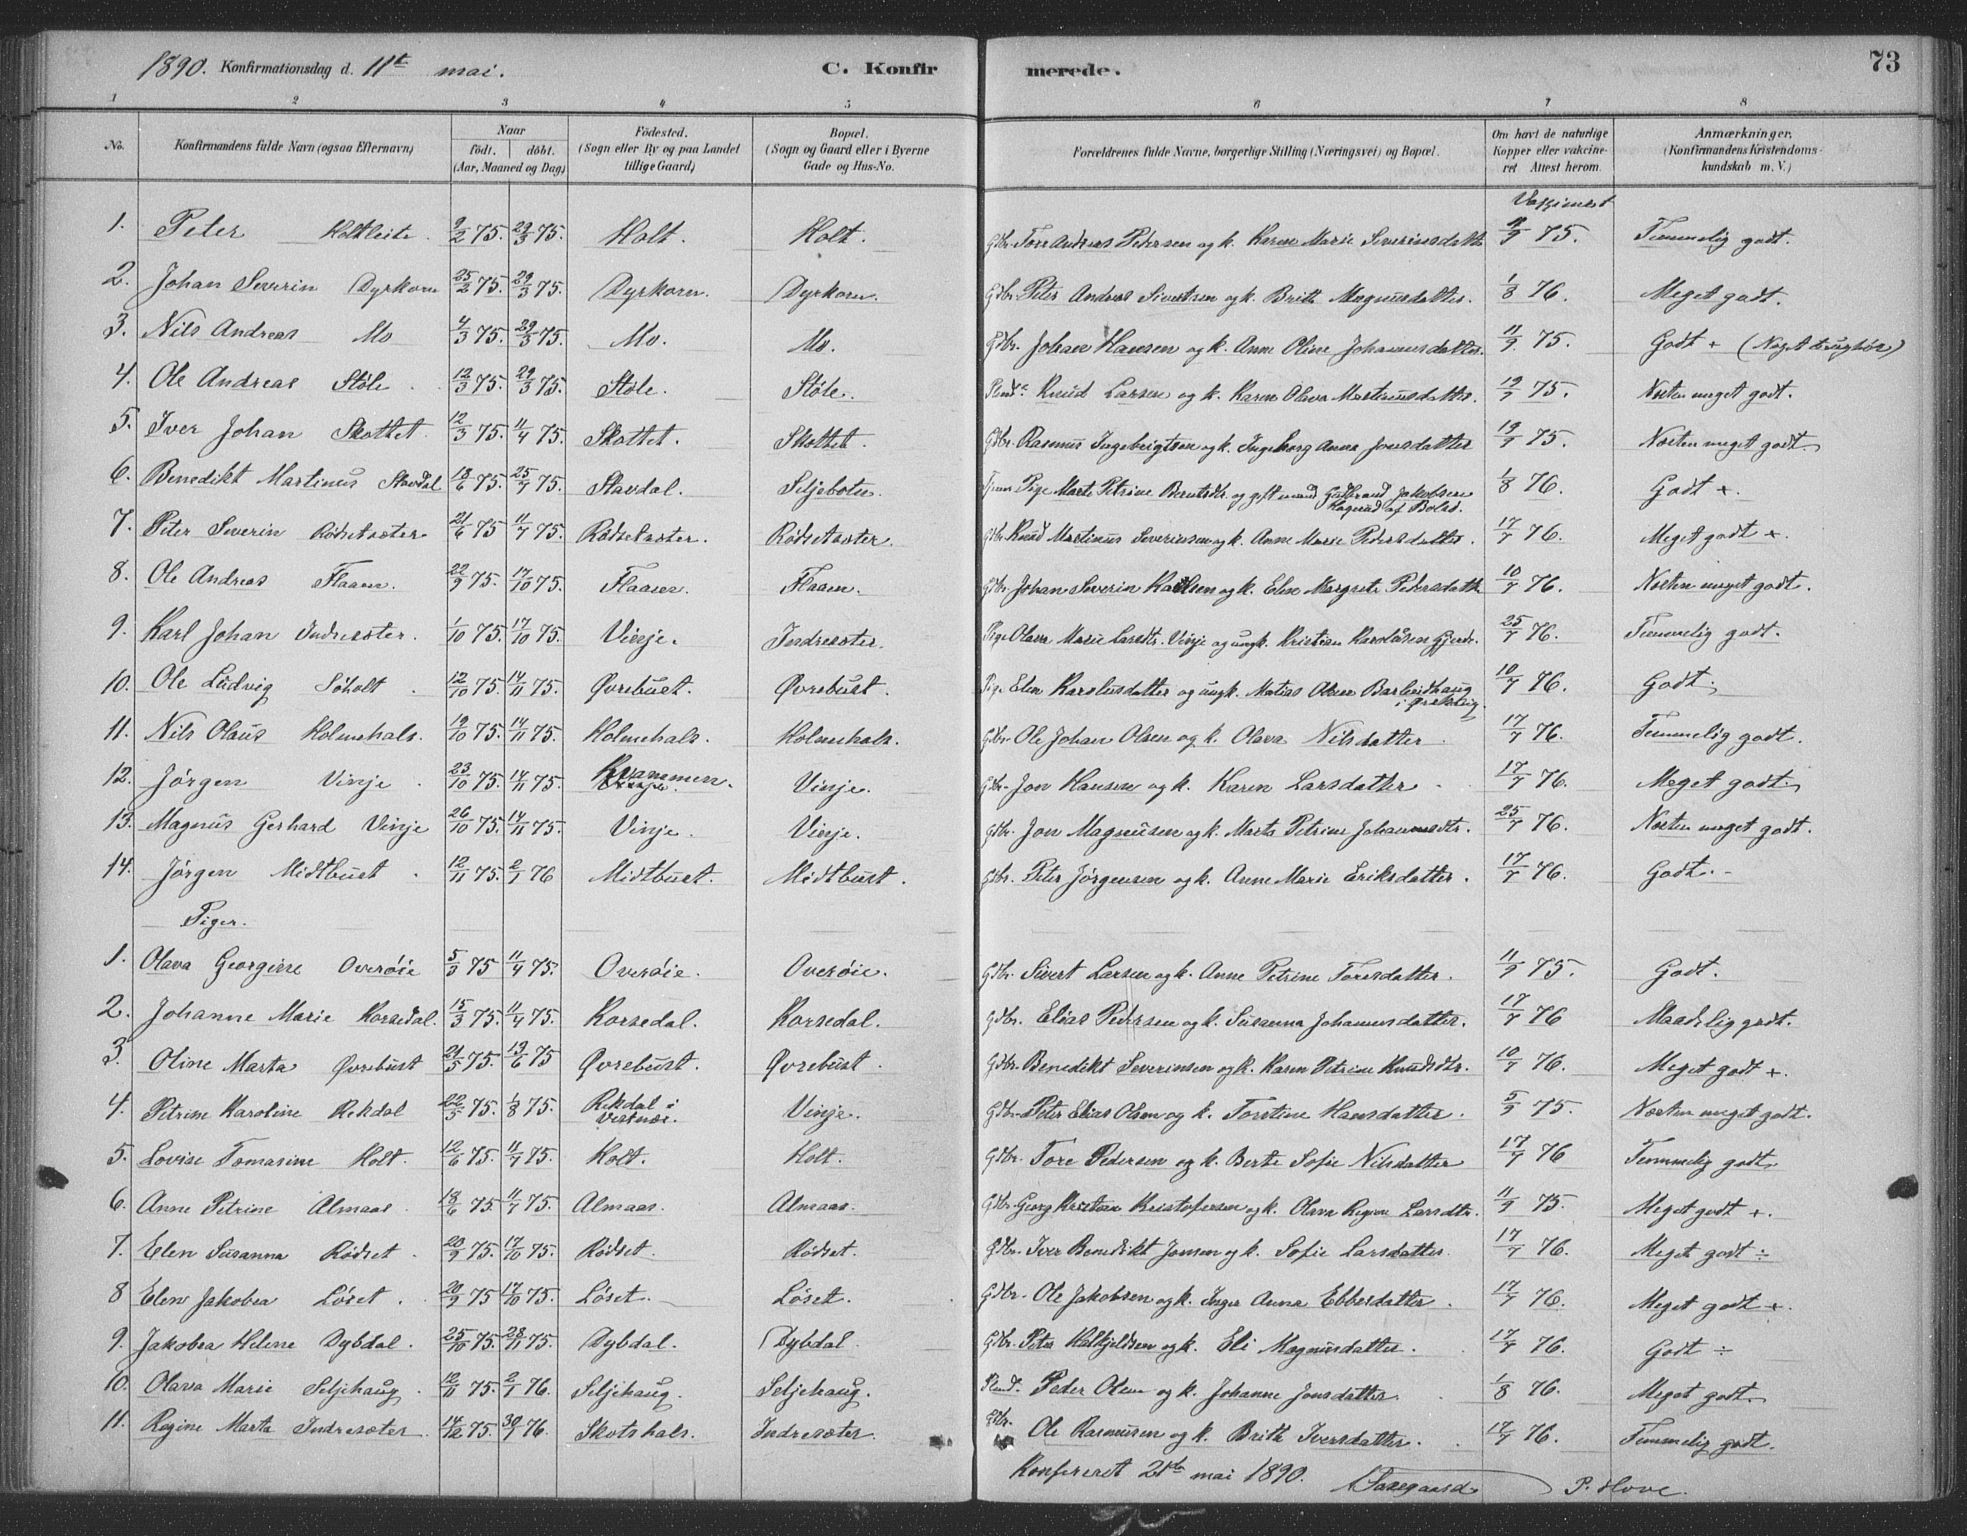 1890. Konfirmationsdag d. 11te mai. C. Konfirmerede. 73
1 2 3 4 5 6 7 8
No. Konfirmandens fulde Navn (ogsaa Efternavn) Naar födt. döbt. (Aar, Maaned og Dag) Födested. (Sogn eller By og paa Landet tillige Gaard) Bopæl. (Sogn og Gaard eller i Byerne Gade og Hus-No. Forældrenes fulde Navne, borgerlige Stilling (Næringsvei) og Bopæl. Om havt de naturlige Kopper eller vakcineret Attest herom. Anmærkninger. (Konfirmandens Kristendomskundskab m. V.)
1. Peter Holtleite. 9/2 75. 29/3 75. Holt. Holt. Gdbr. Tore Andreas Pedersen og k. Karen Marie Severinsdattr 75. Temmelig godt.
2. Johan Severin Dyrkorn 25/2 75. 29/3 75. Dyrkorn. Dyrkorn. Gdbr. Peter Andreas Sivertsen og k. Brith Magnusdatter. 1/8 76. Meget godt.
3. Nils Andreas Mo 4/3 75. 29/3 75. Mo. Mo. Gdbr. Johan Hansen og k. Anne Oline Johannesdatter. 11/9 75. Godt + (Noget tunghør)
4. Ole Andreas Støle. 12/3 75. 29/3 75. Støle. Støle. Knud Larsen og k. Karen Olava Martinusdatter. 19/9 75. Næsten meget godt.
5. Iver Johan Skottet. 12/3 75. 11/4 75. Skottet. Skottet. Gdbr. Rasmus Ingebrigtsen og k. Ingeborg Anna Jonsdatter 19/9 75. Næsten meget godt.
6. Benedikt Martinus Stavdal 18/6 75. 25/7 75. Stavdal. Seljebotn. Pige Marte Petrine Berntsdtr. og gift mand Gudbrand Jakobsen Hagerud af Bolsø. 1/8 76. Godt +.
7. Peter Severin Rødsetsæter 21/6 75 11/7 75. Rødsetsæter. Rødsetsæter. Gdbr. Knud Martinus Severinsen og k. Anne Marie Pedersdatter. 17/7 76. Meget godt +.
8. Ole Andreas Flaaen. 22/9 75. 17/10 75. Flaaen. Flaaen. Gdbr. Johan Severin Karlsen og k. Elen Margrete Pedersdattr 10/7 76. Næsten meget godt.
9. Karl Johan Indresæter. 1/10 75. 17/10 75. Vinje. Indresæter. Pige Olava Marie Larsdtr. Vinje og ungk. Kristian Karolusen Gjerde. 25/7 76. Temmelig godt.
10. Ole Ludvig Søholt. 12/10 75. 14/11 75. Øvrebust. Øvrebust. Pige Elen Karolusdatter og ungk. Matias Olsen 10/7 76. Godt.
11. Nils Olaus Holmehals. 19/10 75. 14/11 75. Holmehals. Holmehals. Gdbr. Ole Johan Olsen og k. Olava Nilsdatter 17/7 76. Temmelig godt.
12. Jørgen Vinje. 23/10 75. 14/11 75. Kvammen. Vinje. Gdbr. Jon Hansen og k. Karen Larsdatter. 17/7 76. Meget godt.
13. Magnus Gerhard Vinje 26/10 75. 14/11 75. Vinje. Vinje. Gdbr. Jon Magnusen og k. Marta Petrine Johannesdtr. 25/7 76. Næsten meget godt.
14. Jørgen Midtbust. 12/11 75. 2/1 76 Midtbust. Midtbust. Gdbr. Peter Jørgensen og k. Anne Marie Eriksdatter. 17/7 76. Godt.
Piger.
1. Olava Georgine Overøie 5/3 75 11/4 75. Overøie. Overøie. Gdbr. Sivert Larsen og k. Anne Petrine Toresdatter. 11/9 75. Godt.
2. Johanne Marie Korsedal. 15/3 75. 11/4 75. Korsedal. Korsedal. Gdbr. Elias Pedersen og k. Susanna Johannesdatter. 17/7 76 Maadelig godt.
3. Oline Marta Øvrebust 21/5 75. 13/6 75 Øvrebust. Øvrebust. Gdbr. Benedikt Severinsen og k. Karen Petrine Knudsdtr. 10/7 76. Meget godt +.
4. Petrine Karoline Rekdal 22/5 75. 1/8 75. Rekdal i Vestnæs. Vinje. Gdbr. Peter Elias Olsen og k. Torstine Hansdatter. 5/9 75. Næsten meget godt.
5. Lovise Tomasine Holt. 12/6 75. 11/7 75. Holt. Holt. Gdbr. Tore Pedersen og k. Berte Sofie Nilsdatter 17/7 76 Temmelig godt.
6. Anne Petrine Almaas. 18/6 75. 11/7 75. Almaas. Almaas. Gdbr. Georg Kristian Kristofersen og k. Olava Regine Larsdtr. 11/9 75. Meget godt +.
7. Elen Susanna Rødset. 20/9 75. 17/10 75. Rødset. Rødset. Gdbr. Iver Benedikt Jonsen og k. Sofie Larsdatter 17/7 76. Meget godt ÷
8 Elen Jakobea Løset. 20/9 75 17/10 75. Løset. Løset. Gdbr. Ole Jakobsen og k. Inger Anna Ebbesdatter. 17/7 76. Meget godt +.
9. Jakobea Helene Dybdal. 25/10 75. 28/11 75. Dybdal. Dybdal. Gdbr. Peter Halkjeldsen og k. Eli Magnusdatter. 17/7 76. Godt ÷
10. Olava Marie Seljehaug. 12/11 75. 2/1 76. Seljehaug. Seljehaug. Peder Olsen og k. Johanne Jonsdatter. 1/8 76. Meget godt.
11. Regine Marta Indresæter. 14/12 75. 30/1 76. Skotshals. Indresæter. Gdbr. Ole Rasmusen og k. Brith Iversdatter. 17/7 76. Temmelig godt.
Konfereret 21de mai 1890. P. Hove.